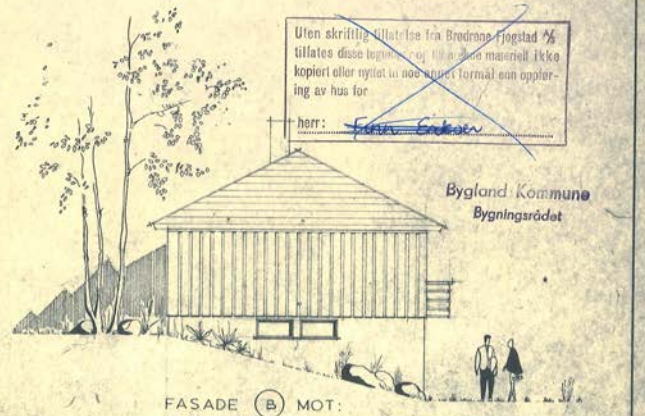 Uten skriftlig tillatelse fra Brødrene Fjogstad A/S
tillates disse materiell ikke
kopiert eller nyttet til noe annet formål enn oppfør-
ing av hus for
herr:
Bygland Kommune
Bygningsrådet
FASADE B MOT: